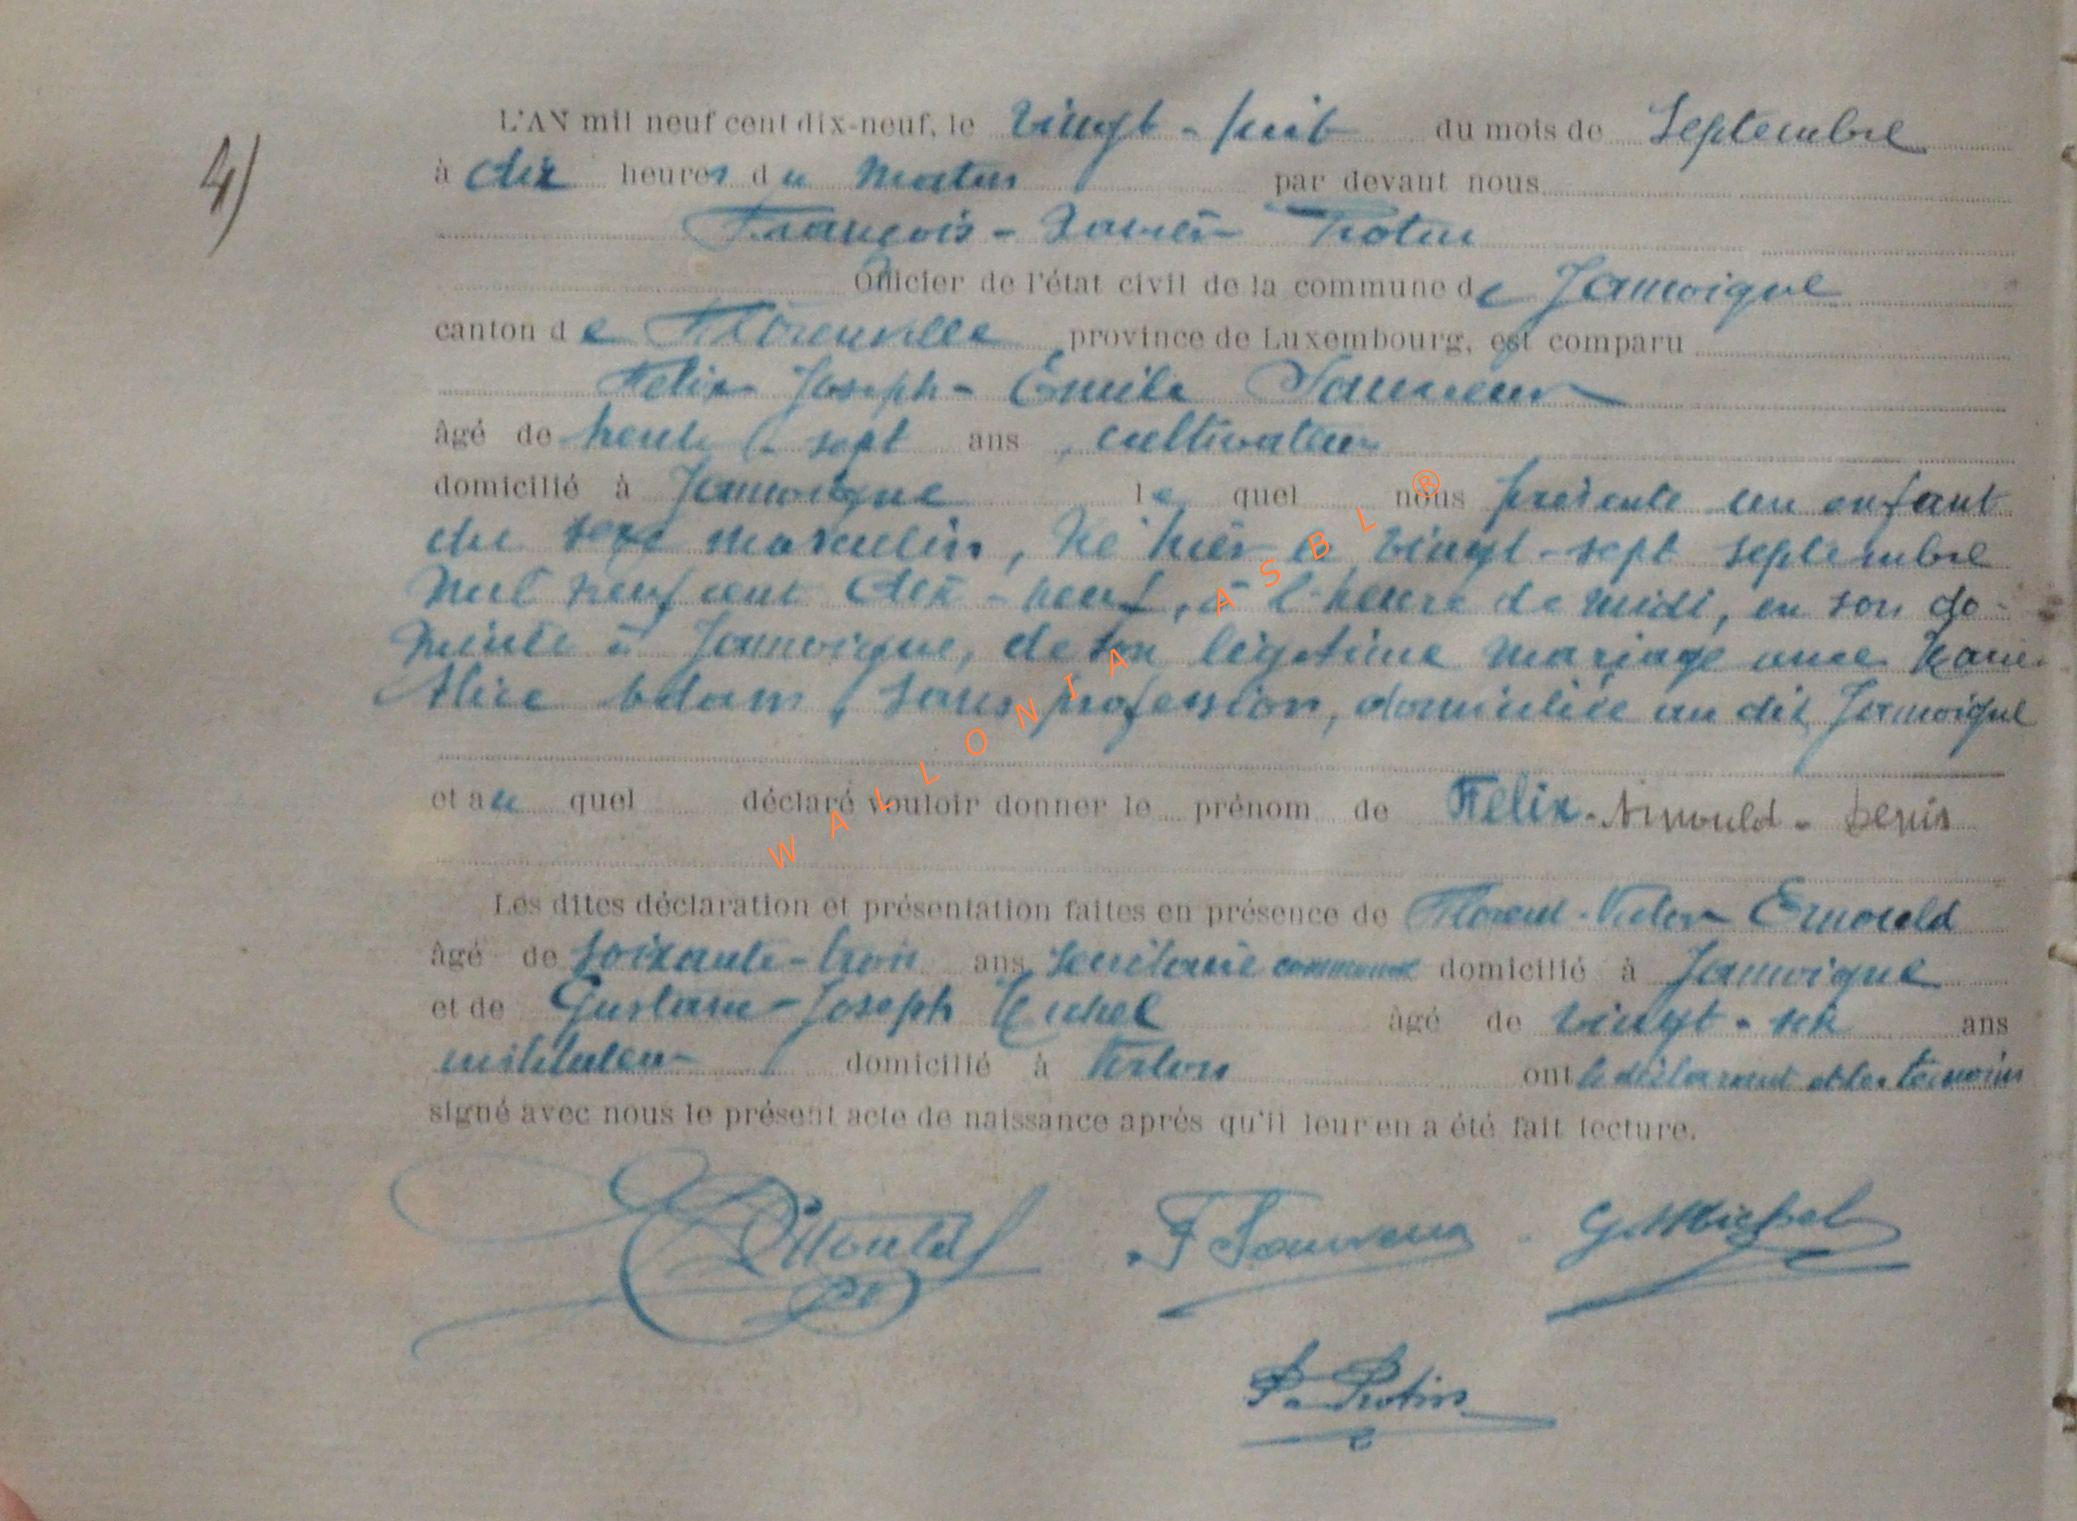 4)
L'AN mil neuf cent dix-neuf, le vingt-huit du mois de Septembre
à dix heures du matin par devant nous
François-Xavier Protin
Officier de l'état civil de la commune de Jamoigne
canton de Florenville, province de Luxembourg, est comparu
Félix-Joseph-Emile Sauveur
âgé de trente-sept ans, cultivateur
domicilié à Jamoigne lequel nous présente un enfant
du sexe masculin, né hier le vingt-sept septembre
mil neuf cent dix-neuf, à l'heure de midi, en son do-
micile à Jamoigne, de son légitime mariage avec Marie
Alice Adam, sans profession, domiciliée au dit Jamoigne
et auquel déclaré vouloir donner le prénom de Félix-Arnould-Denis
Les dites déclaration et présentation faites en présence de Florent-Victor Ernould
âgé de soixante-trois ans secrétaire communal domicilié à Jamoigne
et de Gustave-Joseph Michel âgé de vingt-six ans
instituteur domicilié à Virton ont le déclarant et les témoins
signé avec nous le présent acte de naissance après qu'il leur en a été fait lecture.
F Sauveur
G. Michel
Protin
WALLONIA ASBL ®